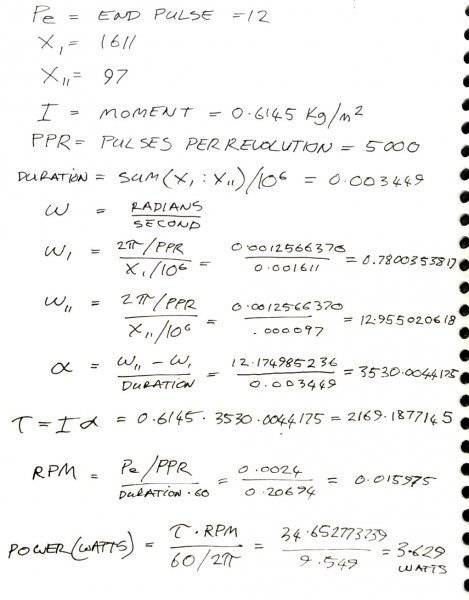 Pe = END PULSE = 12
X₁ = 1611
X₁₁ = 97
I = MOMENT = 0.6145 Kg/m²
PPR = PULSES PER REVOLUTION = 5000
DURATION = SUM(X₁:X₁₁)/10⁶ = 0.003449
ω = RADIANS / SECOND
ω₁ = 2π/PPR / X₁/10⁶ = 0.0012566370 / 0.001611 = 0.7800353817
ω₁₁ = 2π/PPR / X₁₁/10⁶ = 0.0012566370 / .000097 = 12.955020618
α = ω₁₁ - ω₁ / DURATION = 12.174985236 / 0.003449 = 3530.0044175
τ = Iα = 0.6145 · 3530.0044175 = 2169.1877145
RPM = Pe/PPR / DURATION·60 = 0.0024 / 0.20694 = 0.015975
POWER(WATTS) = τ·RPM / 60/2π = 34.652773739 / 9.549 = 3.629 WATTS